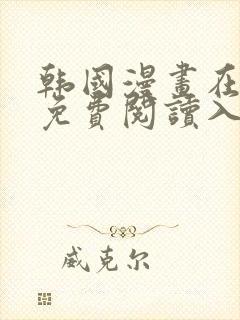 韩國漫畫在
免費閱讀入
威克尔